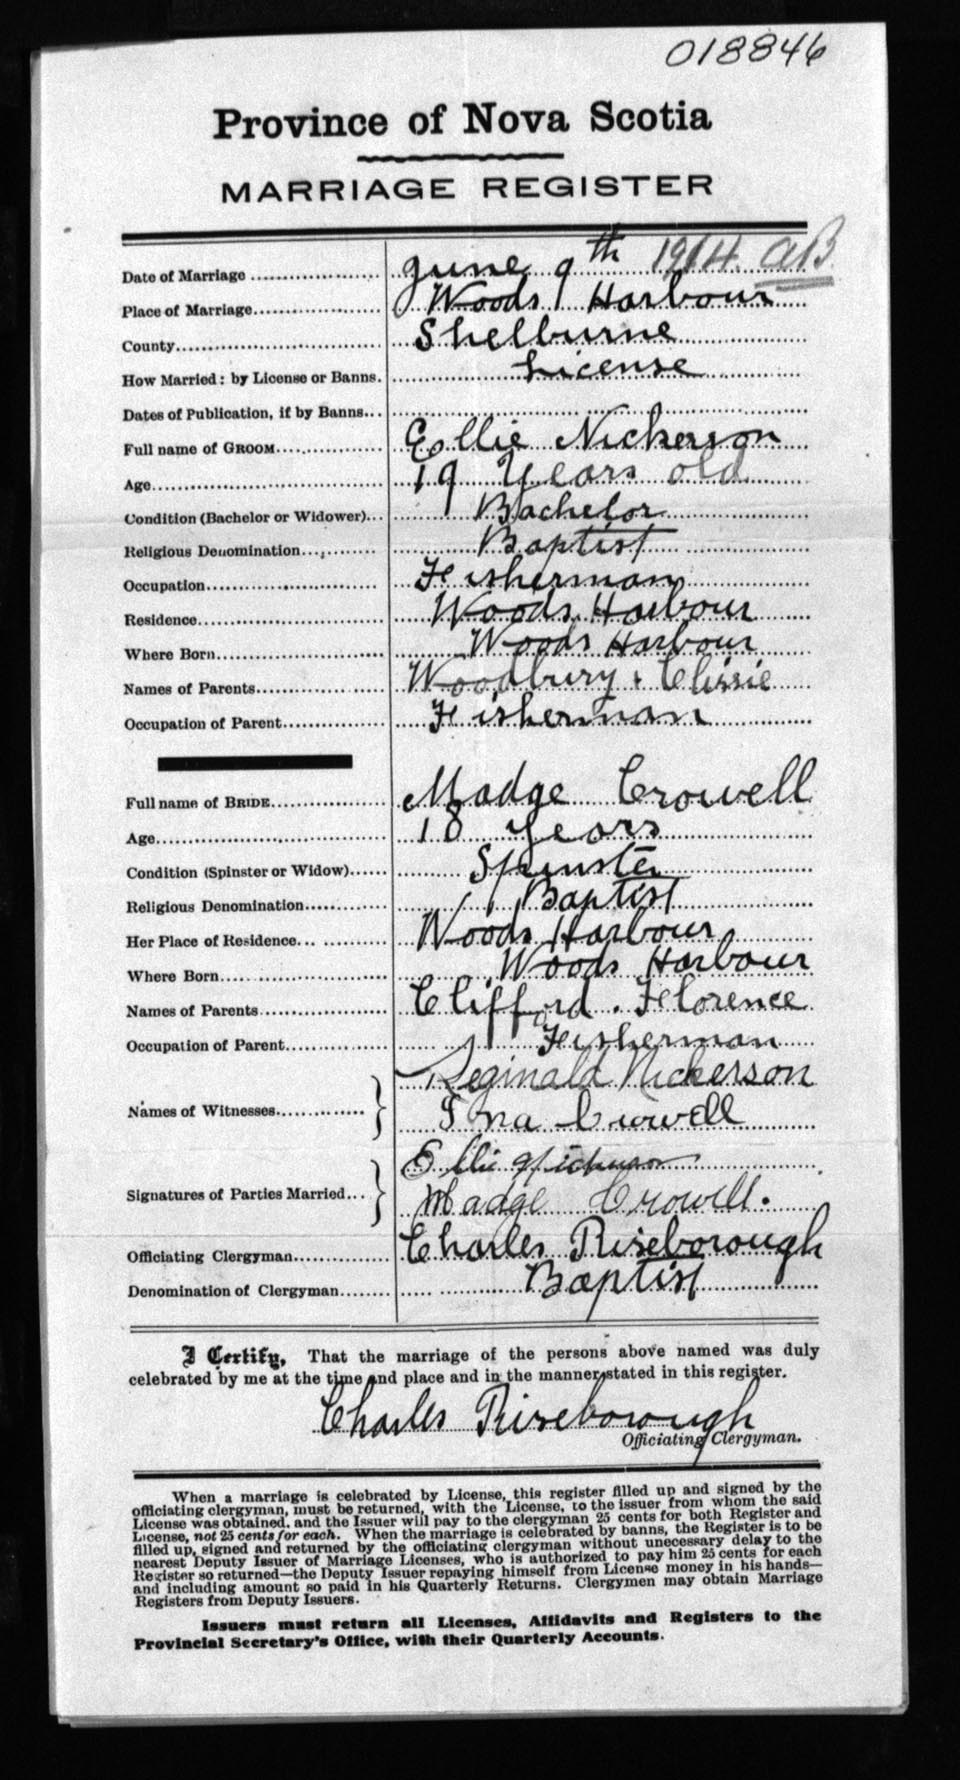 018846
Province of Nova Scotia
MARRIAGE REGISTER
Date of Marriage June 9th 1914. AB
Place of Marriage Woods Harbour
County Shelburne
How Married: by License or Banns. License
Dates of Publication, if by Banns
Full name of GROOM Ellie Nickerson
Age 19 Years old
Condition (Bachelor or Widower) Bachelor
Religious Denomination Baptist
Occupation Fisherman
Residence Woods Harbour
Where Born Woods Harbour
Names of Parents Woodbury & Clissie
Occupation of Parent Fisherman
Full name of BRIDE Madge Crowell
Age 18 years
Condition (Spinster or Widow) Spinster
Religious Denomination Baptist
Her Place of Residence Woods Harbour
Where Born Woods Harbour
Names of Parents Clifford . Florence
Occupation of Parent Fisherman
Names of Witnesses Reginald Nickerson
Ina Crowell
Signatures of Parties Married Ellie Nickerson
Madge Crowell.
Officiating Clergyman Charles Riseborough
Denomination of Clergyman Baptist
I Certify, That the marriage of the persons above named was duly
celebrated by me at the time and place and in the manner stated in this register.
Charles Riseborough
Officiating Clergyman.
When a marriage is celebrated by License, this register filled up and signed by the
officiating clergyman, must be returned, with the License, to the issuer from whom the said
License was obtained, and the Issuer will pay to the clergyman 25 cents for both Register and
License, not 25 cents for each. When the marriage is celebrated by banns, the Register is to be
filled up, signed and returned by the officiating clergyman without unnecessary delay to the
nearest Deputy Issuer of Marriage Licenses, who is authorized to pay him 25 cents for each
Register so returned—the Deputy Issuer repaying himself from License money in his hands—
and including amount so paid in his Quarterly Returns. Clergymen may obtain Marriage
Registers from Deputy Issuers.
Issuers must return all Licenses, Affidavits and Registers to the
Provincial Secretary's Office, with their Quarterly Accounts.